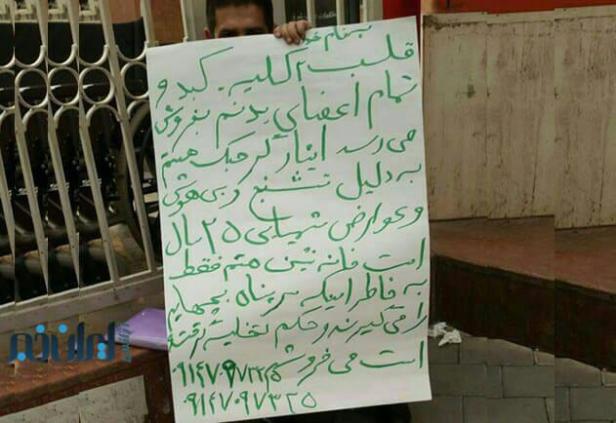 بنام خدا
قلب ۲ کلیه. کبد و
تمام اعضای بدنم بفروش
می رسد ایثارگر جنگ هستم
به دلیل تشنج و بی هوشی
و عوارض شیمیایی ۲۵ سال
است خانه نشین هستم فقط
به خاطر اینکه سرپناه بچهایم
را می گیرند و حکم تخلیه گرفته
است می فروشم
۰۹۱۴۷۰۹۷۳۲۵
ایران خبر